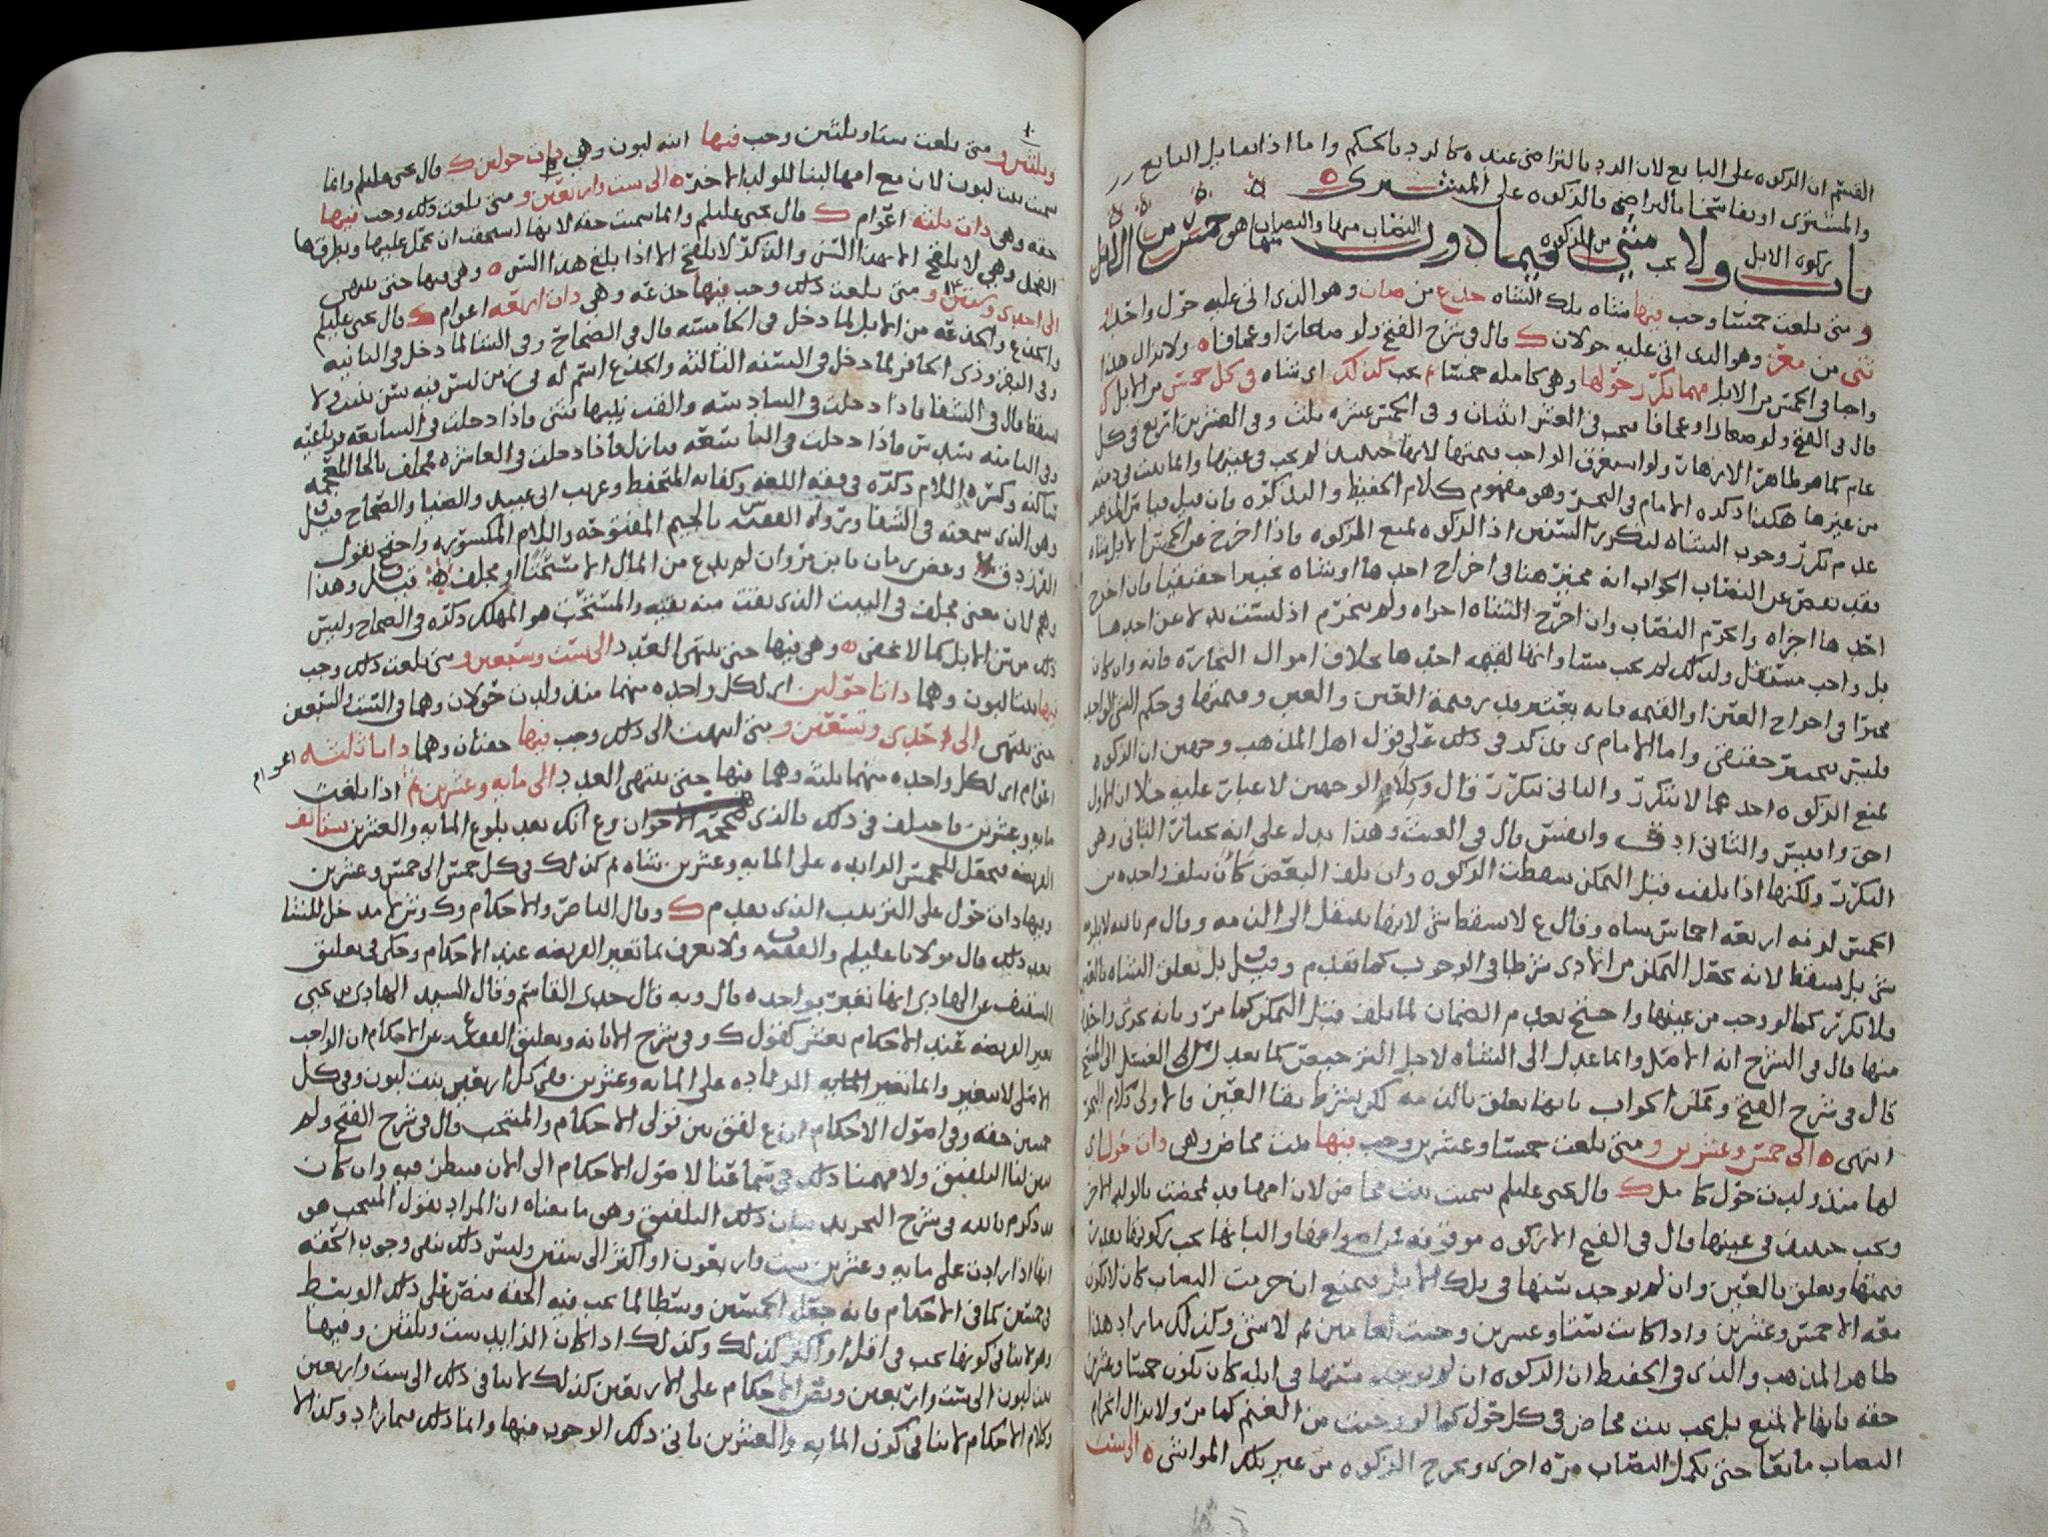 القسم ان الزكوه على البايع لان الرد بالتراضي عنده كالرد بالحكم واما اذا تقايل البايع
والمشتري او تفاسخا بالتراضي فالزكوه على المشتري
باب زكوه الابل ولا يجب شي من الزكوه فيما دون النصاب منها والنصاب فيها هو خمس من الابل
ومتى بلغت خمسا وجب فيها شاه تلك الشاه جذع من ضان وهو الذي اتى عليه حول واحد او
ثني من معز وهو الذي اتى عليه حولان قال في شرح الفتح ولو صغارا او عجافا ولا يزال هذا
واجبا في الخمس من الابل مهما تكرر حولها وهي كامله خمسا ثم يجب كذلك اي شاه في كل خمس من الابل
قال في الفتح ولو صغارا او عجافا فيجب في العشر اثنتان وفي الخمس عشره ثلث وفي العشرين اربع في كل
عام كما هو ظاهر الازهار ولو استغرق الواجب قيمتها لانها حينئذ لم يجب في عينها وانما يثبت في ذمته
من غيرها هكذا ذكره الامام في البحر وهو مفهوم كلام الحفيظ والتذكره فان قيل قياس المذهب
عدم تكرر وجوب الشاه لتكرر السنين اذ الزكوه تمنع الزكوه فاذا اخرج عن الخمس الابل شاه
فقد نقص عن النصاب الجواب انه مخير هنا في اخراج احدها او شاه تخييرا حقيقيا فان اخرج
احدها اجزاه وانخرم النصاب وان اخرج الشاه اجزاه ولم ينخرم اذ ليست بدلا عن احدها
بل واجب مستقل ولذلك لم يجب مساواتها لقيمه احدها بخلاف اموال التجاره فانه وان كان
مخيرا في اخراج العين او القيمه فانه يعتبر قدر قيمة العين والعين وقيمتها في حكم الشي الواحد
فليس بمخير حقيقي واما الامام ي فذكر في ذلك على قول اهل المذهب وجهين ان الزكوه
تمنع الزكوه احدهما لا يتكرر والثاني يتكرر قال وكلام الوجهين لا غبار عليه خلا ان الاول
احق واقيس والثاني ادق وانفس قال في الغيث وهذا يدل على انه يختار الثاني وهو
التكرر ولكنها اذا تلفت قبل التمكن سقطت الزكوه وان تلف البعض كان يتلف واحده من
الخمس لزمه اربعه اخماس شاه وقال ع لا يسقط شي لانها تنتقل الى الذمه وقال م بالله لا يلزمه
شي بل يسقط لانه يجعل التمكن من الادى شرطا في الوجوب كما تقدم وقيل بل تعلق الشاه بالعين
فلا تكرر كما لو وجب من عينها واحتج بعدم الضمان لما تلف قبل التمكن كما مر وبانه يجزي واحده
منها قال في الشرح انه الاصل وانما عدل الى الشاه لاجل التخفيف كما يعدل من الغسل الى المسح
قال في شرح الفتح ويمكن الجواب بانها تعلق بالذمه لكن بشرط بقا العين فالاولى كلام البحر
انتهى الى خمس وعشرين ومتى بلغت خمسا وعشرين وجب فيها بنت مخاض وهي ذات حول اي
لها منذ ولدت حول كامل قال يحيى عليلم سميت بنت مخاض لان امها قد تمخضت بالولد الاخر
ويجب حينئذ في عينها قال في الفتح الا زكوه موقوفه
قيمتها وتعلق بالعين وان لم يوجد سنها في تلك الابل
معه الا خمس وعشرين واذا كانت ستا وعشرين وجبت لعامين ثم لا شي وكذلك ما زاد هذا
ظاهر المذهب والذي في الحفيظ ان الزكوه ان لم يوجد سنها في ابله كان يكون خمسا وعشرين
حقه فانها لا تمنع بل يجب بنت مخاض في كل حول كما لو وجبت من الغنم كما مر ولا يزال انخرام
النصاب مانعا حتى يكمل النصاب مره اخرى ويخرج الزكوه من غير تلك المواشي الى ست
وثلثين ومتى بلغت ستا وثلثين وجب فيها ابنه لبون وهي ذات حولين قال يحيى عليلم وانما
سميت بنت لبون لان مع امها لبنا للولد الاخر الى ست واربعين ومتى بلغت ذلك وجب فيها
حقه وهي ذات ثلثه اعوام قال يحيى عليلم وانما سميت حقه لانها استحقت ان يحمل عليها ويطرقها
الفحل وهي لا تلقح الا بهذا السن والذكر لا يلقح الا اذا بلغ هذا السن وهي فيها حتى ينتهي
الى احدى وستين ومتى بلغت ذلك وجب فيها جذعه وهي ذات اربعه اعوام قال يحيى عليلم
والجذع والجذعه من الابل لما دخل في الخامسه قال في الصحاح وفي الشا لما دخل في الثانيه
وفي البقر وذي الحافر لما دخل في السنه الثالثه والجذع اسم له في زمن ليس فيه سن تنبت ولا
تسقط قال في الشفا فاذا دخلت في السادسه والقت ثنيتها فثني فاذا دخلت في السابعه فرباعيه
وفي الثامنه سديس فاذا دخلت في التاسعه فبازل فاذا دخلت في العاشره فمخلف بالخا المعجمه
ساكنه وكسر اللام ذكره في فقه اللغه وكفايه المتحفظ وغريب ابي عبيد والضيا والصحاح قيل
وهو الذي سمعته في الشفا ورواه الفقيه س بالجيم المفتوحه واللام المكسوره واحتج بقول
الفرزدق وعض زمان يا بن مروان لم يدع من المال الا مسحتا او مجلف قيل وهذا
وهم لان معنى مجلف في البيت الذي بقيت منه بقيه والمسحت هو المهلك ذكره في الصحاح وليس
ذلك من سن الابل كما لا يخفى وهي فيها حتى ينتهي العدد الى ست وسبعين ومتى بلغت ذلك وجب
فيها بنتا لبون وهما ذاتا حولين اي لكل واحده منهما منذ ولدت حولان وهما في الست والسبعين
حتى ينتهي الى احدى وتسعين ومتى انتهت الى ذلك وجب فيها حقتان وهما ذاتا ثلثه اعوام
اعوام اي لكل واحده منهما ثلثه وهما فيها حتى ينتهي العدد الى مايه وعشرين ثم اذا بلغت
مايه وعشرين فاختلف في ذلك فالذي صححه الاخوان وع انك بعد بلوغ المايه والعشرين تستانف
الفريضه فيجعل للخمس الزايده على المايه وعشرين شاه ثم كذلك في كل خمس الى خمس وعشرين
وفيها ذات حول على الترتيب الذي تقدم وقال الناصر والاحكام وك وش لا مدخل للشا
بعد ذلك قال مولانا عليلم والفقيه ف ولا يعرف بما تغير الفريضه عند الاحكام وحكى في تعليق
عن الهادي انها تغير بواحده قال وبه قال جدي القاسم وقال السيد الهادي بن يحيى
تغير الفريضه عند الاحكام بعشر كقول ك وفي شرح الابانه وتعليق الفقيه ع عن الاحكام ان الواجب
الاصلي لا يتغير وانما تغير المايه الزياده على المايه وعشرين ففي كل اربعين بنت لبون وفي كل
خمسين حقه وفي اصول الاحكام ان ع لفق بين قولي الاحكام والمنتخب قال في شرح الفتح ولم
يبن لنا التلفيق ولا فهمنا ذلك في سماعنا لاصول الاحكام الى الان
م بالله في شرح التجريد بيان ذلك التلفيق وهو ما معناه ان المراد بقول المنتخب هو
انها اذا زادت على مايه وعشرين ست واربعون او اكثر الى ستين وليس ذلك ينفي وجوب الحقه
في خمسين كما في الاحكام فانه جعل الخمسين وسطا لما يجب فيه الحقه فنص على ذلك الوسط
وهو لا ينافي كونها تجب في اقل او اكثر كذلك وكذلك اذا كان الزايد ست وثلثين وفيها
بنت لبون الى ست واربعين ونص الاحكام على الاربعين كذلك لا ينافي ذلك الى ست واربعين
وكلام الاحكام لا ينافي كون المايه والعشرين ياتي ذلك الوجوب فيها وانما ذلك بما زاد وكذا لا